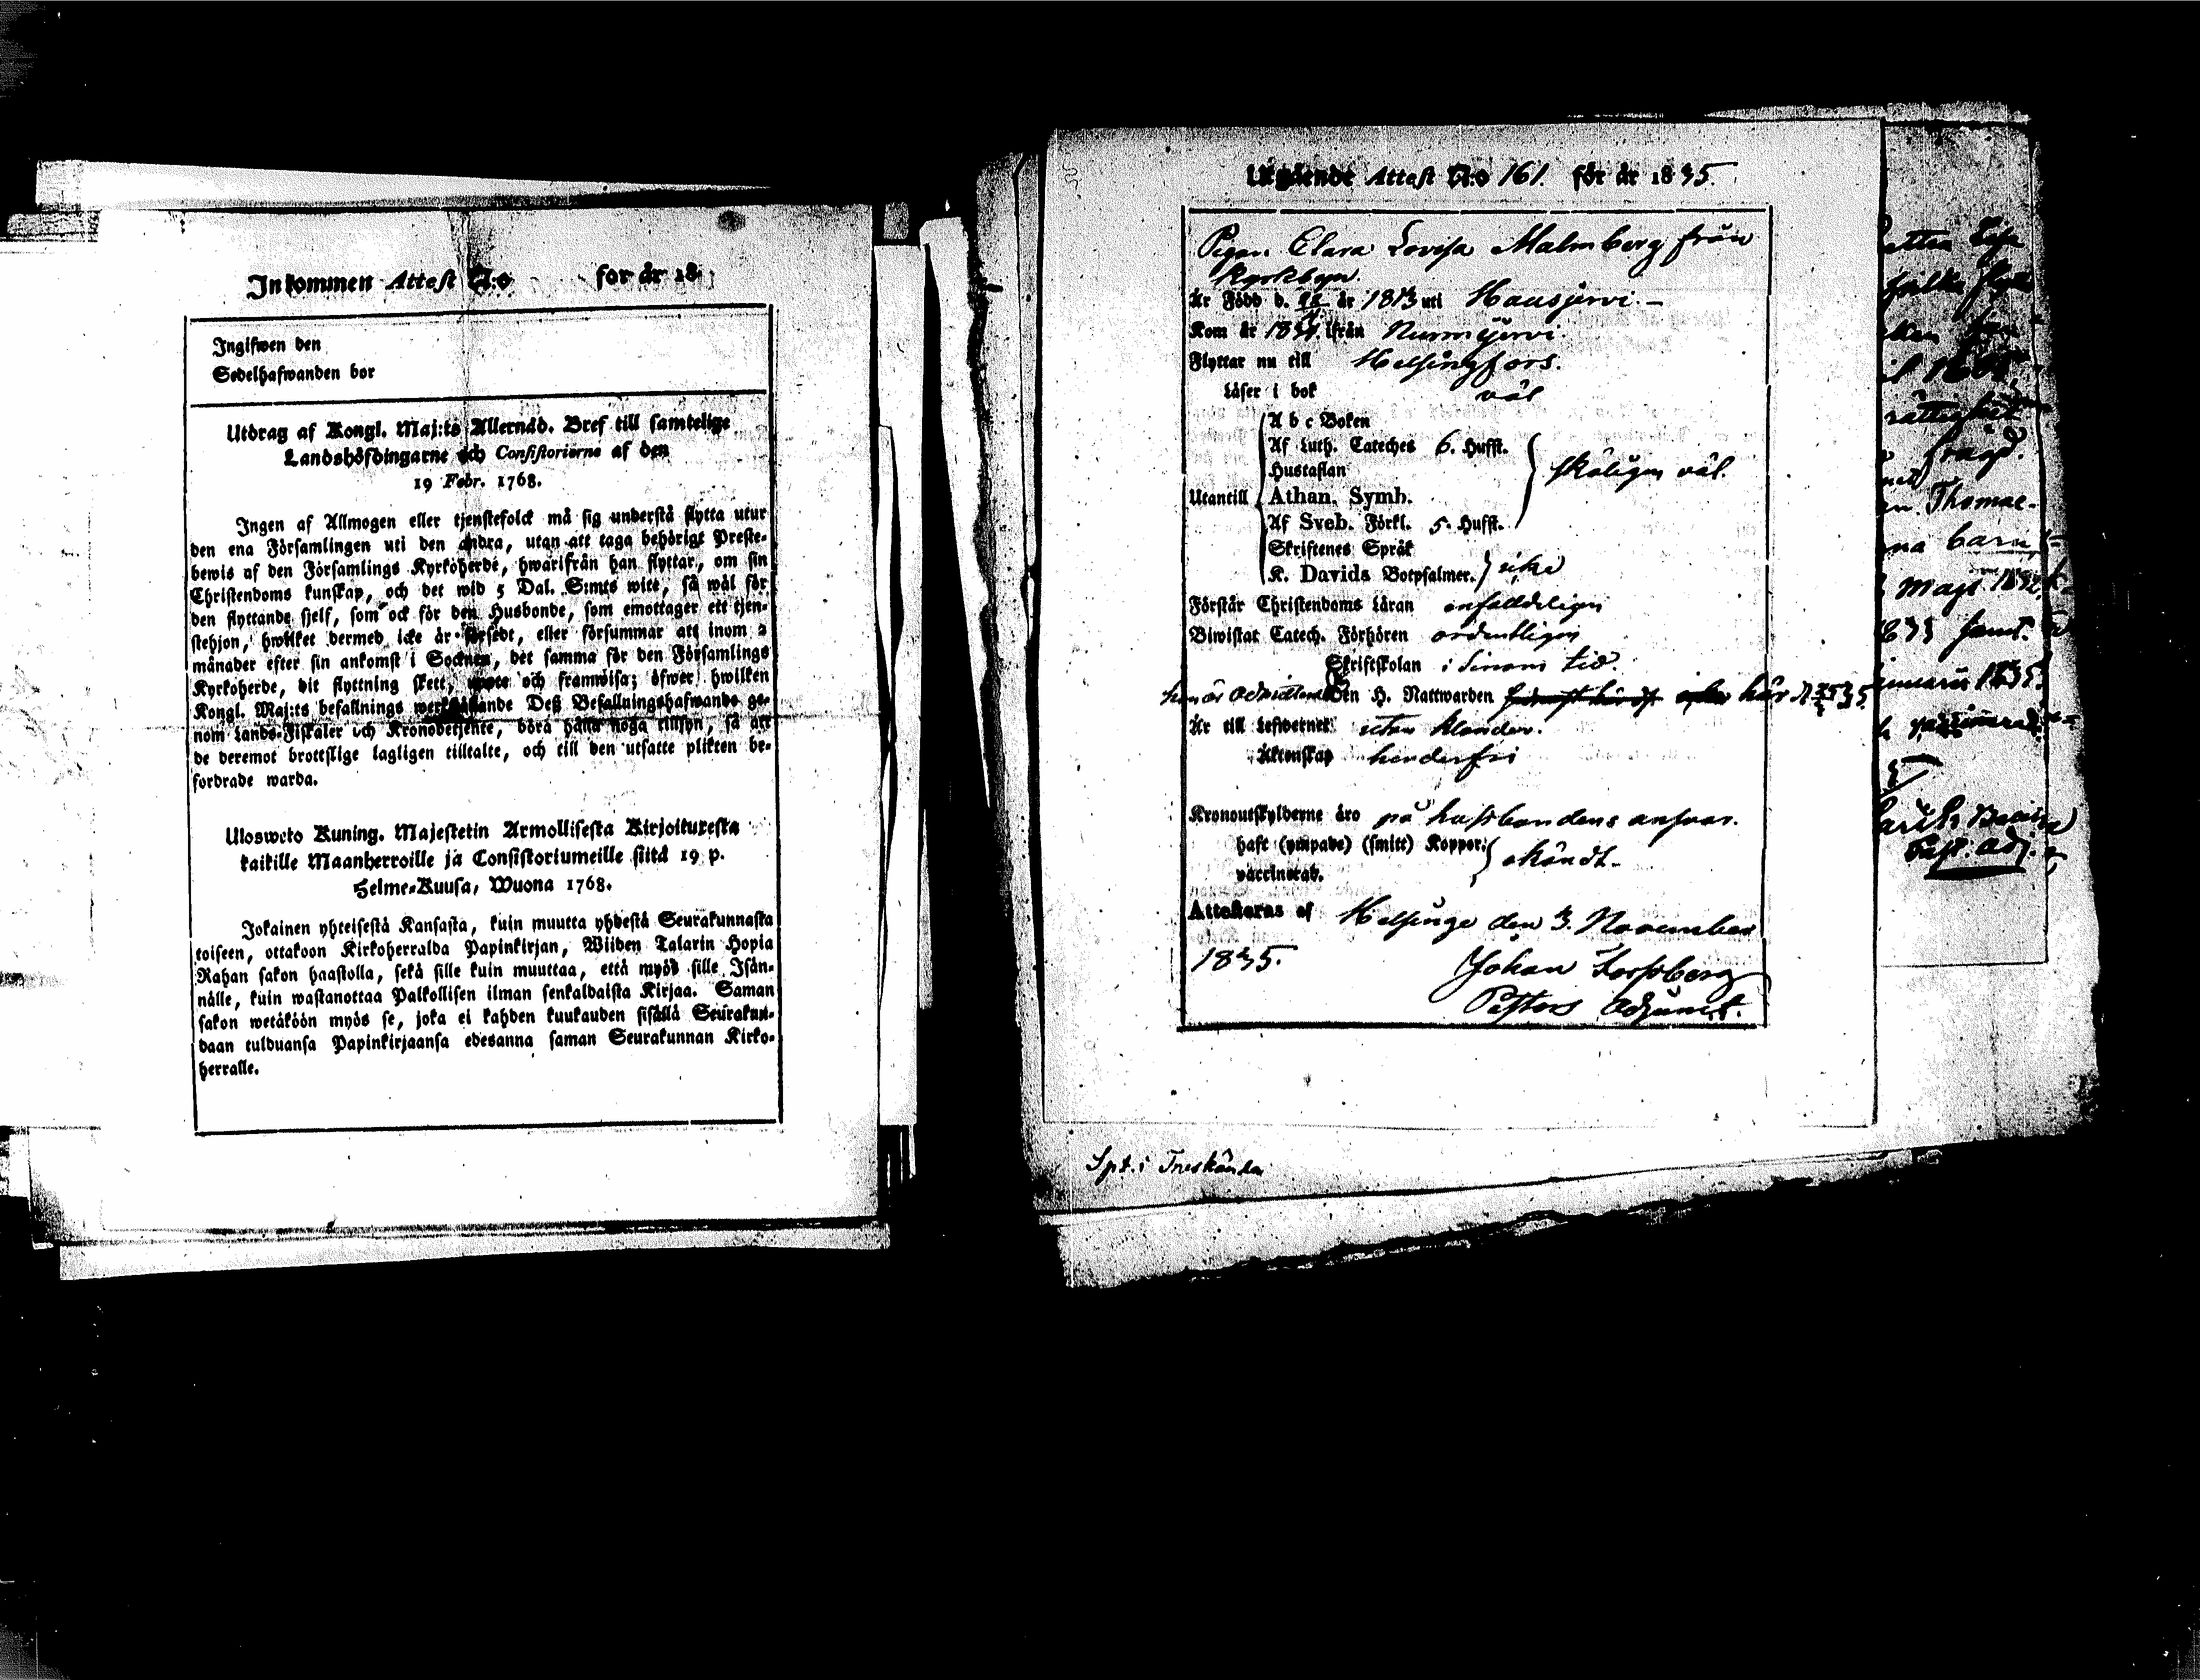 Inkommen Attest N:o for år 18
Ingifwen den
Sedelhafwanden bor
Utdrag af Kongl. Maj:ts Allernåd. Bref till samtelige
Landshöfdingarne och Consistorierne af den
19 Febr. 1768.
Ingen af Allmogen eller tjenstefolck må sig understå flytta utur
den ena Församlingen uti den andra, utan att taga behörigt Preste-
bewis af den Församlings Kyrkoherde, hwarifrån han flyttar, om sin
Christendoms kunskap, och det wid 5 Dal. S:mts wite, så wäl för
den flyttande sjelf, som ock för den Husbonde, som emottager ett tjen-
stehjon, hwilket dermed icke är försedt, eller försummar att inom 2
månader efter sin ankomst i Socknen, det samma för den Församlings
Kyrkoherde, dit flyttning skett, upte och framwisa; öfwer hwilken
Kongl. Maj:ts befallnings werkställande Deß Befallningshafwande ge-
nom Lands-Fiskaler och Kronobetjente, böra hålla noga tillsyn, så att
de deremot brottslige lagligen tilltalte, och till den utsatte plikten be-
fordrade warda.
Ulosweto Kuning. Majestetin Armollisesta Kirjoituresta
kaikille Maanherroille ja Consistoriumeille siitä 19 p.
Helme-Kuusa, Wuona 1768.
Jokainen yhteisestä Kansasta, kuin muutta yhdestä Seurakunnasta
toiseen, ottakoon Kirkoherralda Papinkirjan, Wiiden Talarin Hopia
Rahan sakon haastolla, sekä sille kuin muuttaa, että myös sille Isän-
nälle, kuin wastanottaa Palkollisen ilman senkaldaista Kirjaa. Saman
sakon wetäköön myös se, joka ei kahden kuukauden sisällä Seurakun-
daan tulduansa Papinkirjaansa edesanna saman Seurakunnan Kirko-
herralle.
Utgående Attest N:o 161. för år 1835.
Pigan Clara Lovisa Malmberg från
Kyrkbyn
Är Född d. år 1813 uti Hausjervi. –
Kom år 1834 ifrån Nurmijervi.
Flyttar nu till Helsingfors.
Läser i bok väl
A b c Boken
Af Luth. Cateches 6. Hufst.
Hustaflan skäligen väl.
Utantill Athan. Symb.
Af Sveb. Förkl. 5. Hufst.
Skriftenes Språk
K. Davids Botpsalmer. icke
Förstår Christendoms Läran enfalldeligen
Biwistat Catech. Förhören ordentligen
Skriftskolan i sinom tid.
Den H. Nattwarden här
Är till Lefwernet utan klander.
Äktenskap hinderfri
Kronoutskylderne äro på husbondens ansvar.
haft (ympade) (smitt) Koppor.
vaccinerad. okändt.
Attesteras af Helsinge den 3. November
1835.
Johan Forssberg
Pastors Adjunct.
Spt. i Träskända
Thomae-
barn
Maji 1832.
Januarii 1835.